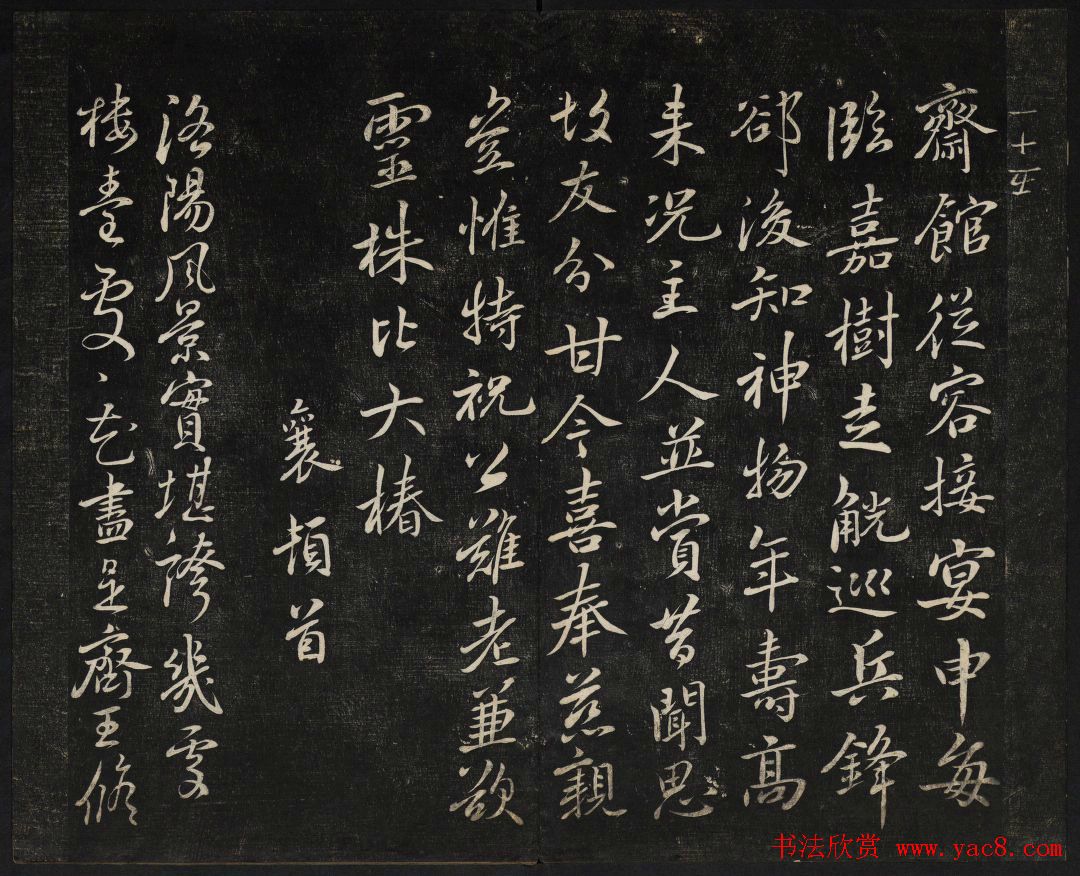 一十五
齋館從容接宴申每
臨嘉樹走觥巡兵鋒
郤後知神物年壽高
来况主人並賞昔聞思
故友分甘今喜奉慈親
豈惟特祝公難老兼欲
靈株比大椿
襄頓首
洛陽風景實堪誇幾處
樓臺處〻花盡是齋王脩
书法欣赏 www.yac8.com